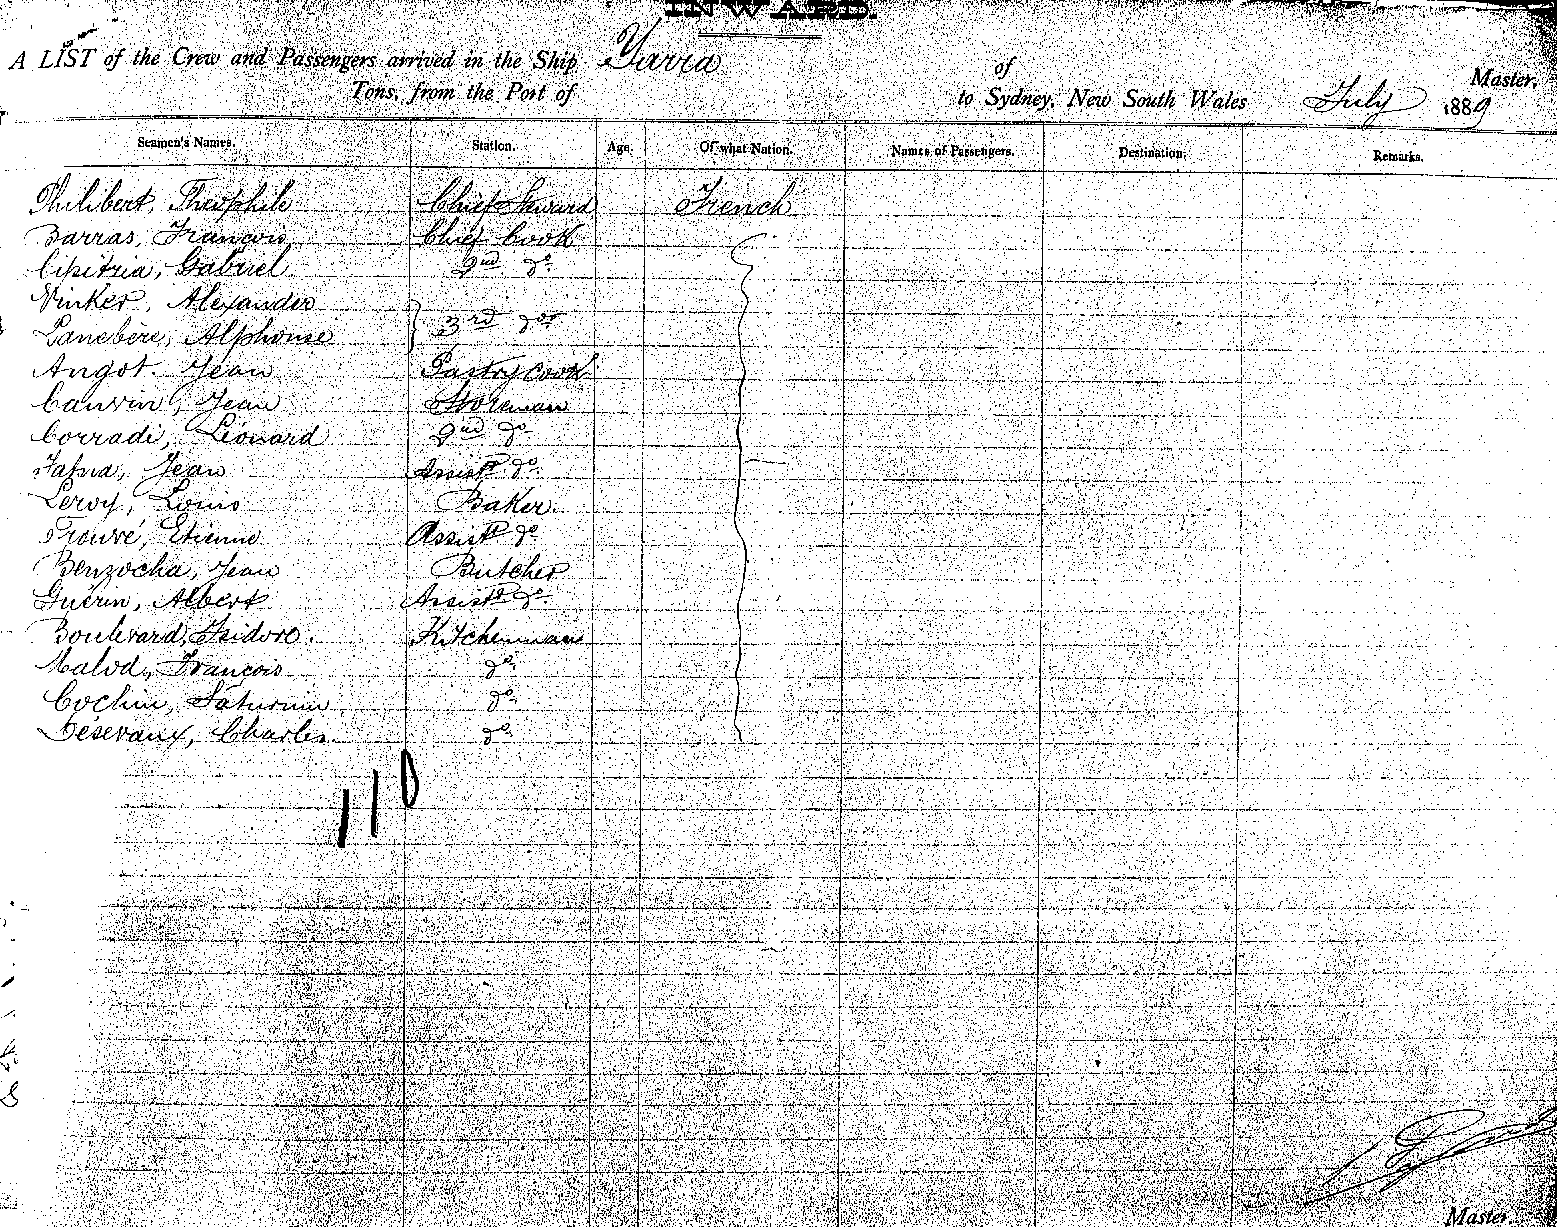 INWARD.
A LIST of the Crew and Passengers arrived in the Ship Yarra of Master,
Tons, from the Port of to Sydney, New South Wales July 1889
Seamen's Names. Station. Age. Of what Nation. Names of Passengers. Destination. Remarks.
Philibert, Théophile Chief Steward French
Barras, François Chief Cook
Gabriel 2nd do.
Vinker, Alexander
Lanebère, Alphonse 3rd dos
Angot. Jean Pastrycook
Canvin, Jean Storeman
Corradi, Léonard 2nd do
Jean Assistt do.
Leroy, Louis Baker.
Trouvé, Etienne Assistt do
Benzocha, Jean Butcher
Guérin, Albert Assistt do.
Boulevard, Isidore. Kitchenman
Malod, François do.
Cochin, Saturnin do.
Désevaux, Charles. do.
110
Master.